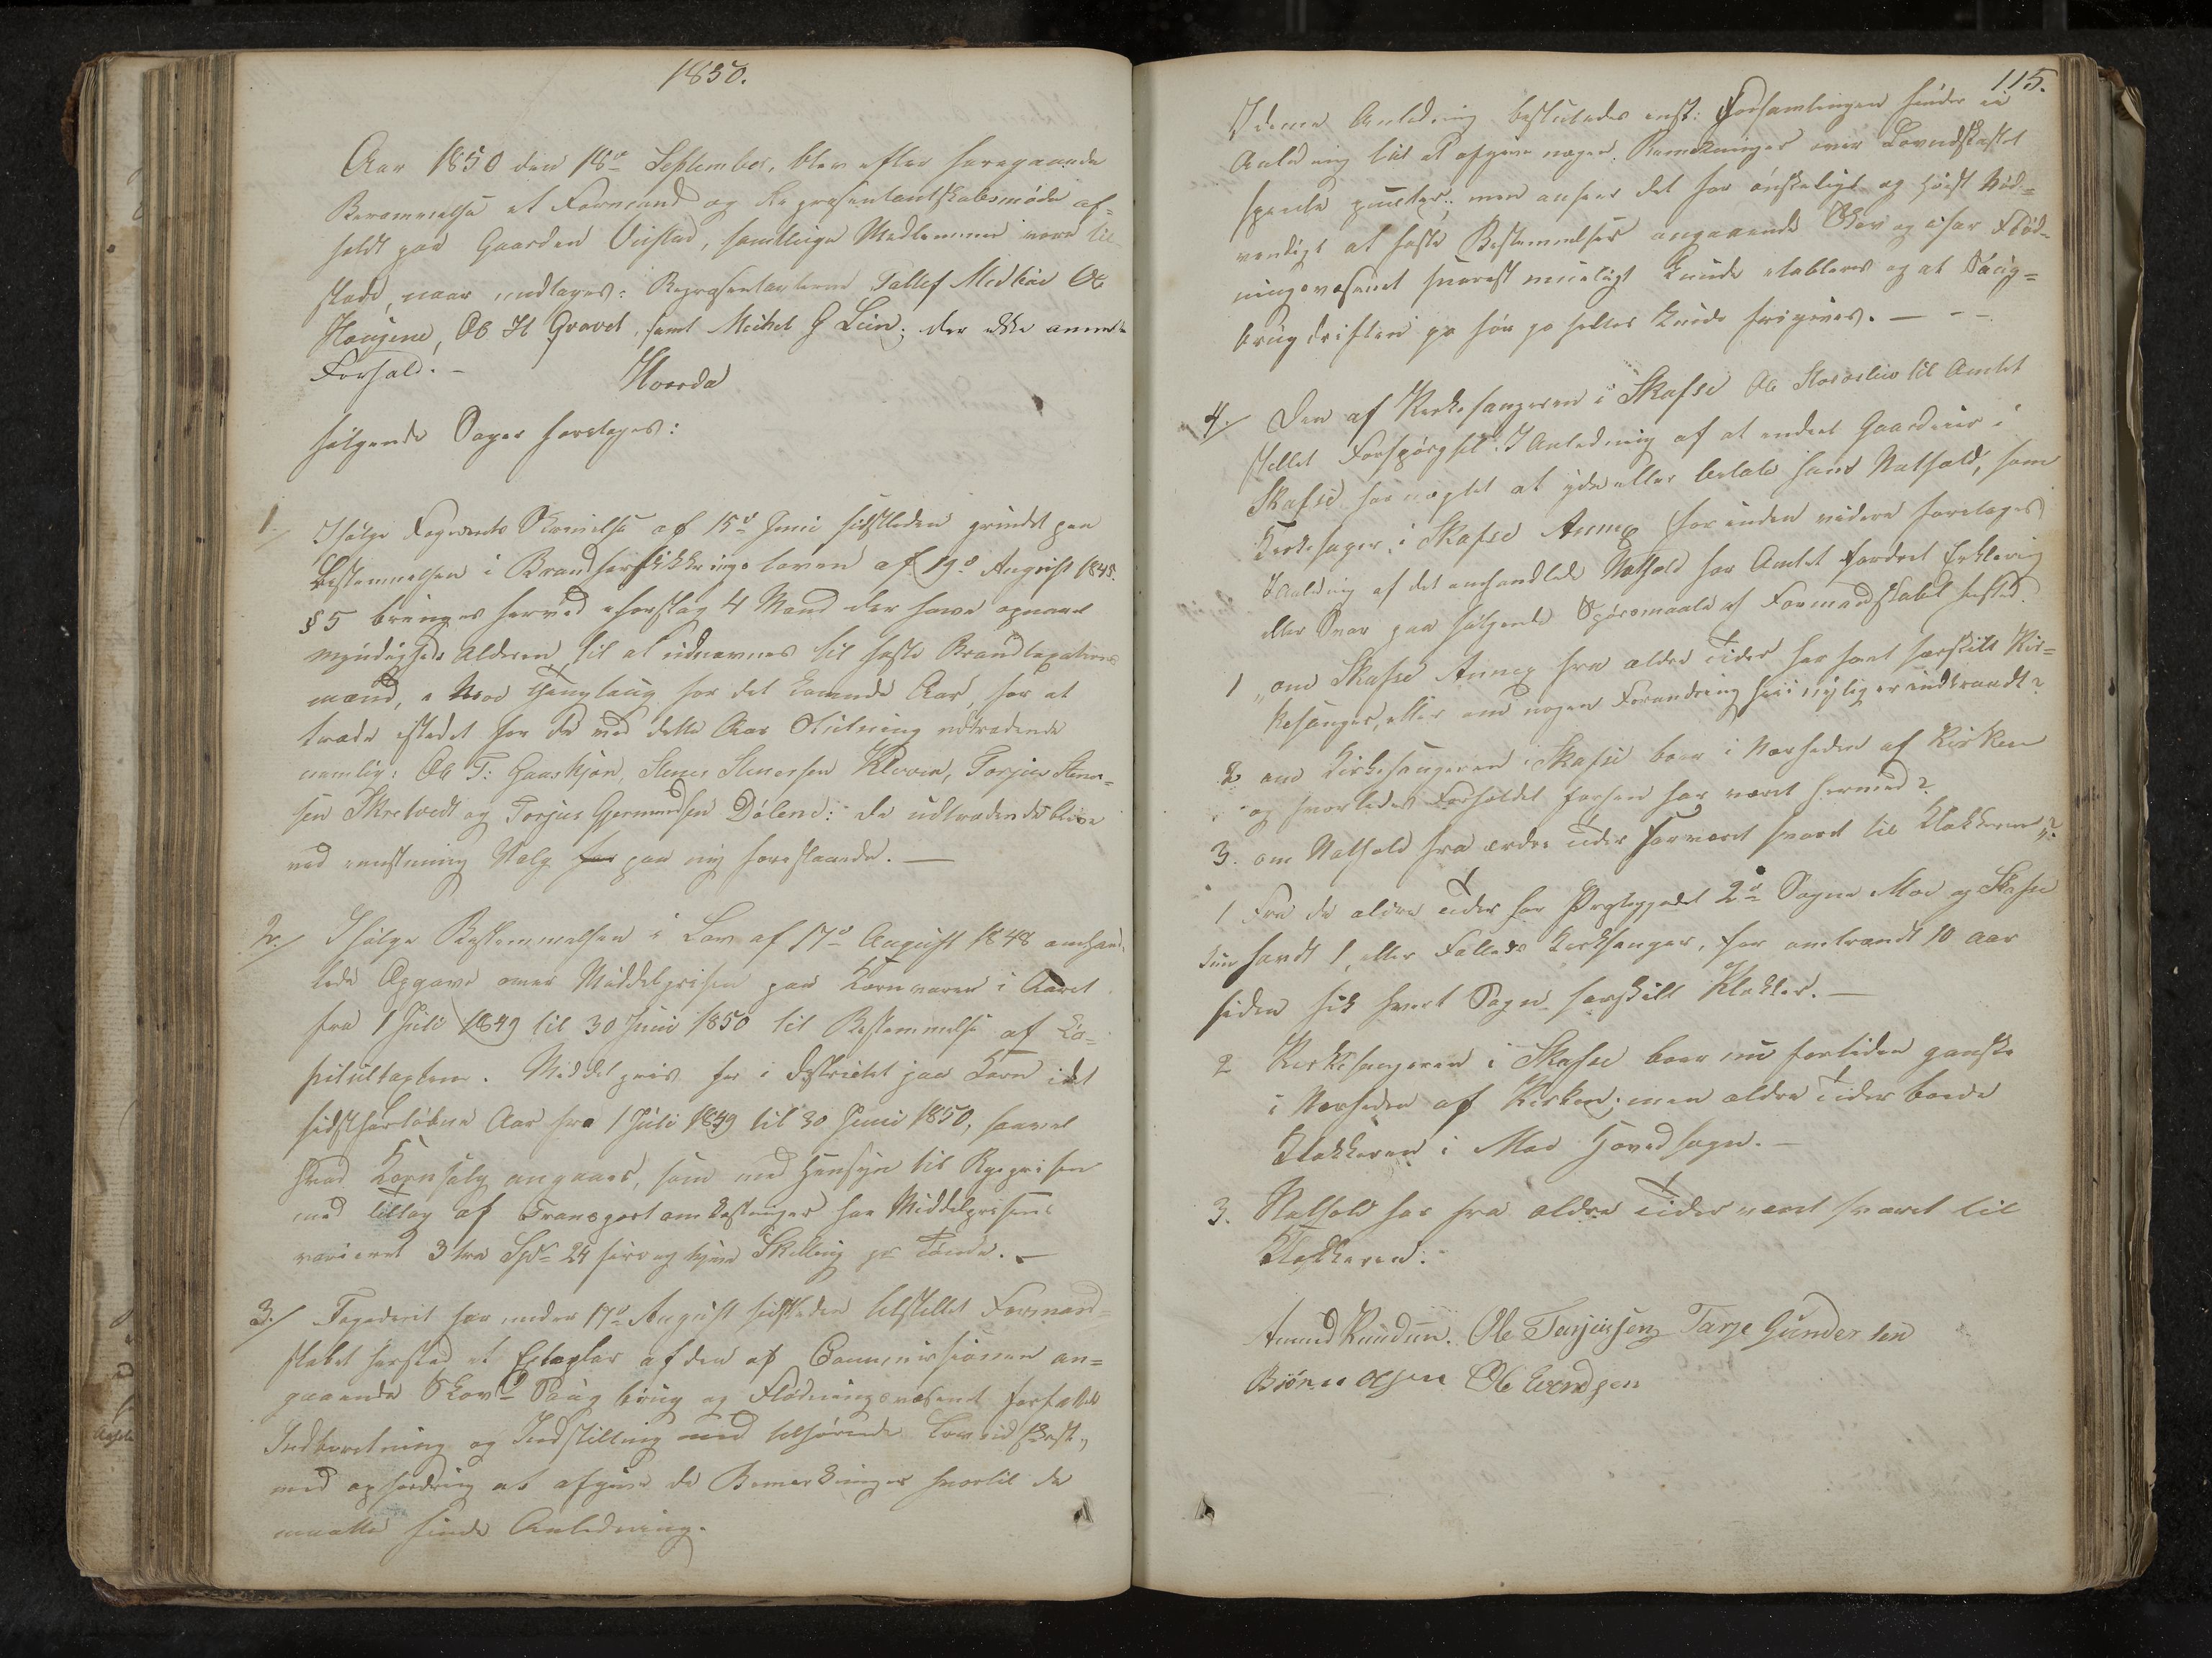 1850.
Aar 1850 den 18de September, blev efter foregaaende
Berammelse et Formand og Repræsentantskabsmøde af=
holdt paa Gaarden Viistad, samtlige Medlemmer vare til
stæde, naar undtages: Repræsentanterne Tallef Midbøe Ole
Haugene, Ole H Gravet, samt Mickel G Lien; der ikke anmeldte
Forfald. –
Hvorda
følgende Sager foretoges:
1./ Ifølge Fogderiets Skrivelse af 15de Juni sidstleden grundet paa
Bestemmelsen i Brandforsikkringsloven af 19de August 1845.
§ 5 bringes herved i forslag 4 Mænd der have opnaaet
myndigheds Alderen, til at udnævnes til faste Brandtaxations
mænd, i Moe Thinglaug for det komende Aar, for at
træde istedet for de med dette Aars Slutning udtrædende
nemlig: Ole T: Gaaskjøn, Stener Stenersen Kleven, Torjus Stener=
sen Skretvedt og Torjus Gjermundsen Dølene: de udtrædende bleve
ved enstemmig Valg for paa ny foreslaaede. —
2./ Ifølge Bestemmelsen i Lov af 17de August 1848 omhand
lede Opgave over Middelprisen paa Kornvarer i Aaret
fra 1 Juli 1849 til 30 Juni 1850 til Bestemmelse af Ca=
pitultaxten. Middelpris her i Districtet paa Korn i det
sidstforløbne Aar fra 1 Juli 1849 til 30 Juni 1850, saavel
hvad Kornsalg angaaes, som med Hensyn til Rugprisen
med tillæg af Transportomkostninger har Middelprisen
varieret 3 tre Spd 24 fire og tyve Skilling pr Tønde. —
3./ Fogderiet har under 17de August sidstleden tilstillet Formand=
skabet hersted et Exlepler af den af Commissionen an=
gaaende Skov= Saug brug og Flødningsvæsenet forfattede
Indberetning og Indstilling med tilhørende Lovudkast,
med opfordring at afgive de Bemærkninger hvortil de
maatte finde Anledning.
115.
I denne Anledning besluttedes enst: Forsamlingen finder ei
Anledning til at afgive nogen Bemærkninger over Lovudkastet
specielle puncter; men ansees det for ønskeligt og høist nød=
vendigt at faste Bestemmelser angaaende Skov og især Flød=
ningsvæsenet snarest mueligt kunde etableres og at Saug=
brugdriften jo før jo heller kunde frigives. — - -
4./ Den af Kirkesangeren i Skafse Ole Storoslien til Amtet
stillet Forspørgsel: I Anledning af at endeel Gaardeier i
Skafse har nægtet at yde eller betale hans Nathold, som
Kirkesager i Skafse Annex (før inden videre foretages
I Anledning af det omhandlede Nathold har Amtet fordret Erklæring
eller Svar paa følgende Spørsmaale af Formandskabet hersted.
1 „om Skafse Annex fra ældre Tider har havt særskilt Kir=
kesanger, eller om nogen Forandring heri nylig er indtraadt?
2 om Kirkesangeren i Skafse boer i Nærheden af Kirken
og hvorledes Forholdet forhen har været hermed?
3. om Nathold fra ældre tider har været svaret til Klokkeren"?
1 Fra de ældre tider har Præstegjeldet 2de Sogne Moe og Skafse
kun havdt 1, eller Fælleds Kirksanger, for omtrændt 10 aar
siden fik hvert Sogn særskilt Klokker. —
2 Kirkesangeren i Skafse boer nu fortiden ganske
i Nærheden af Kirken; men ældre Tider boede
Klokkeren i Moe Hovedsogn. —
3. Nathold har fra ældre Tider været svaret til
Klokkeren:
Amund Knudsen. Ole Torjussen Tarje Gunder sen
Biørn Olsen Ole Evendsen